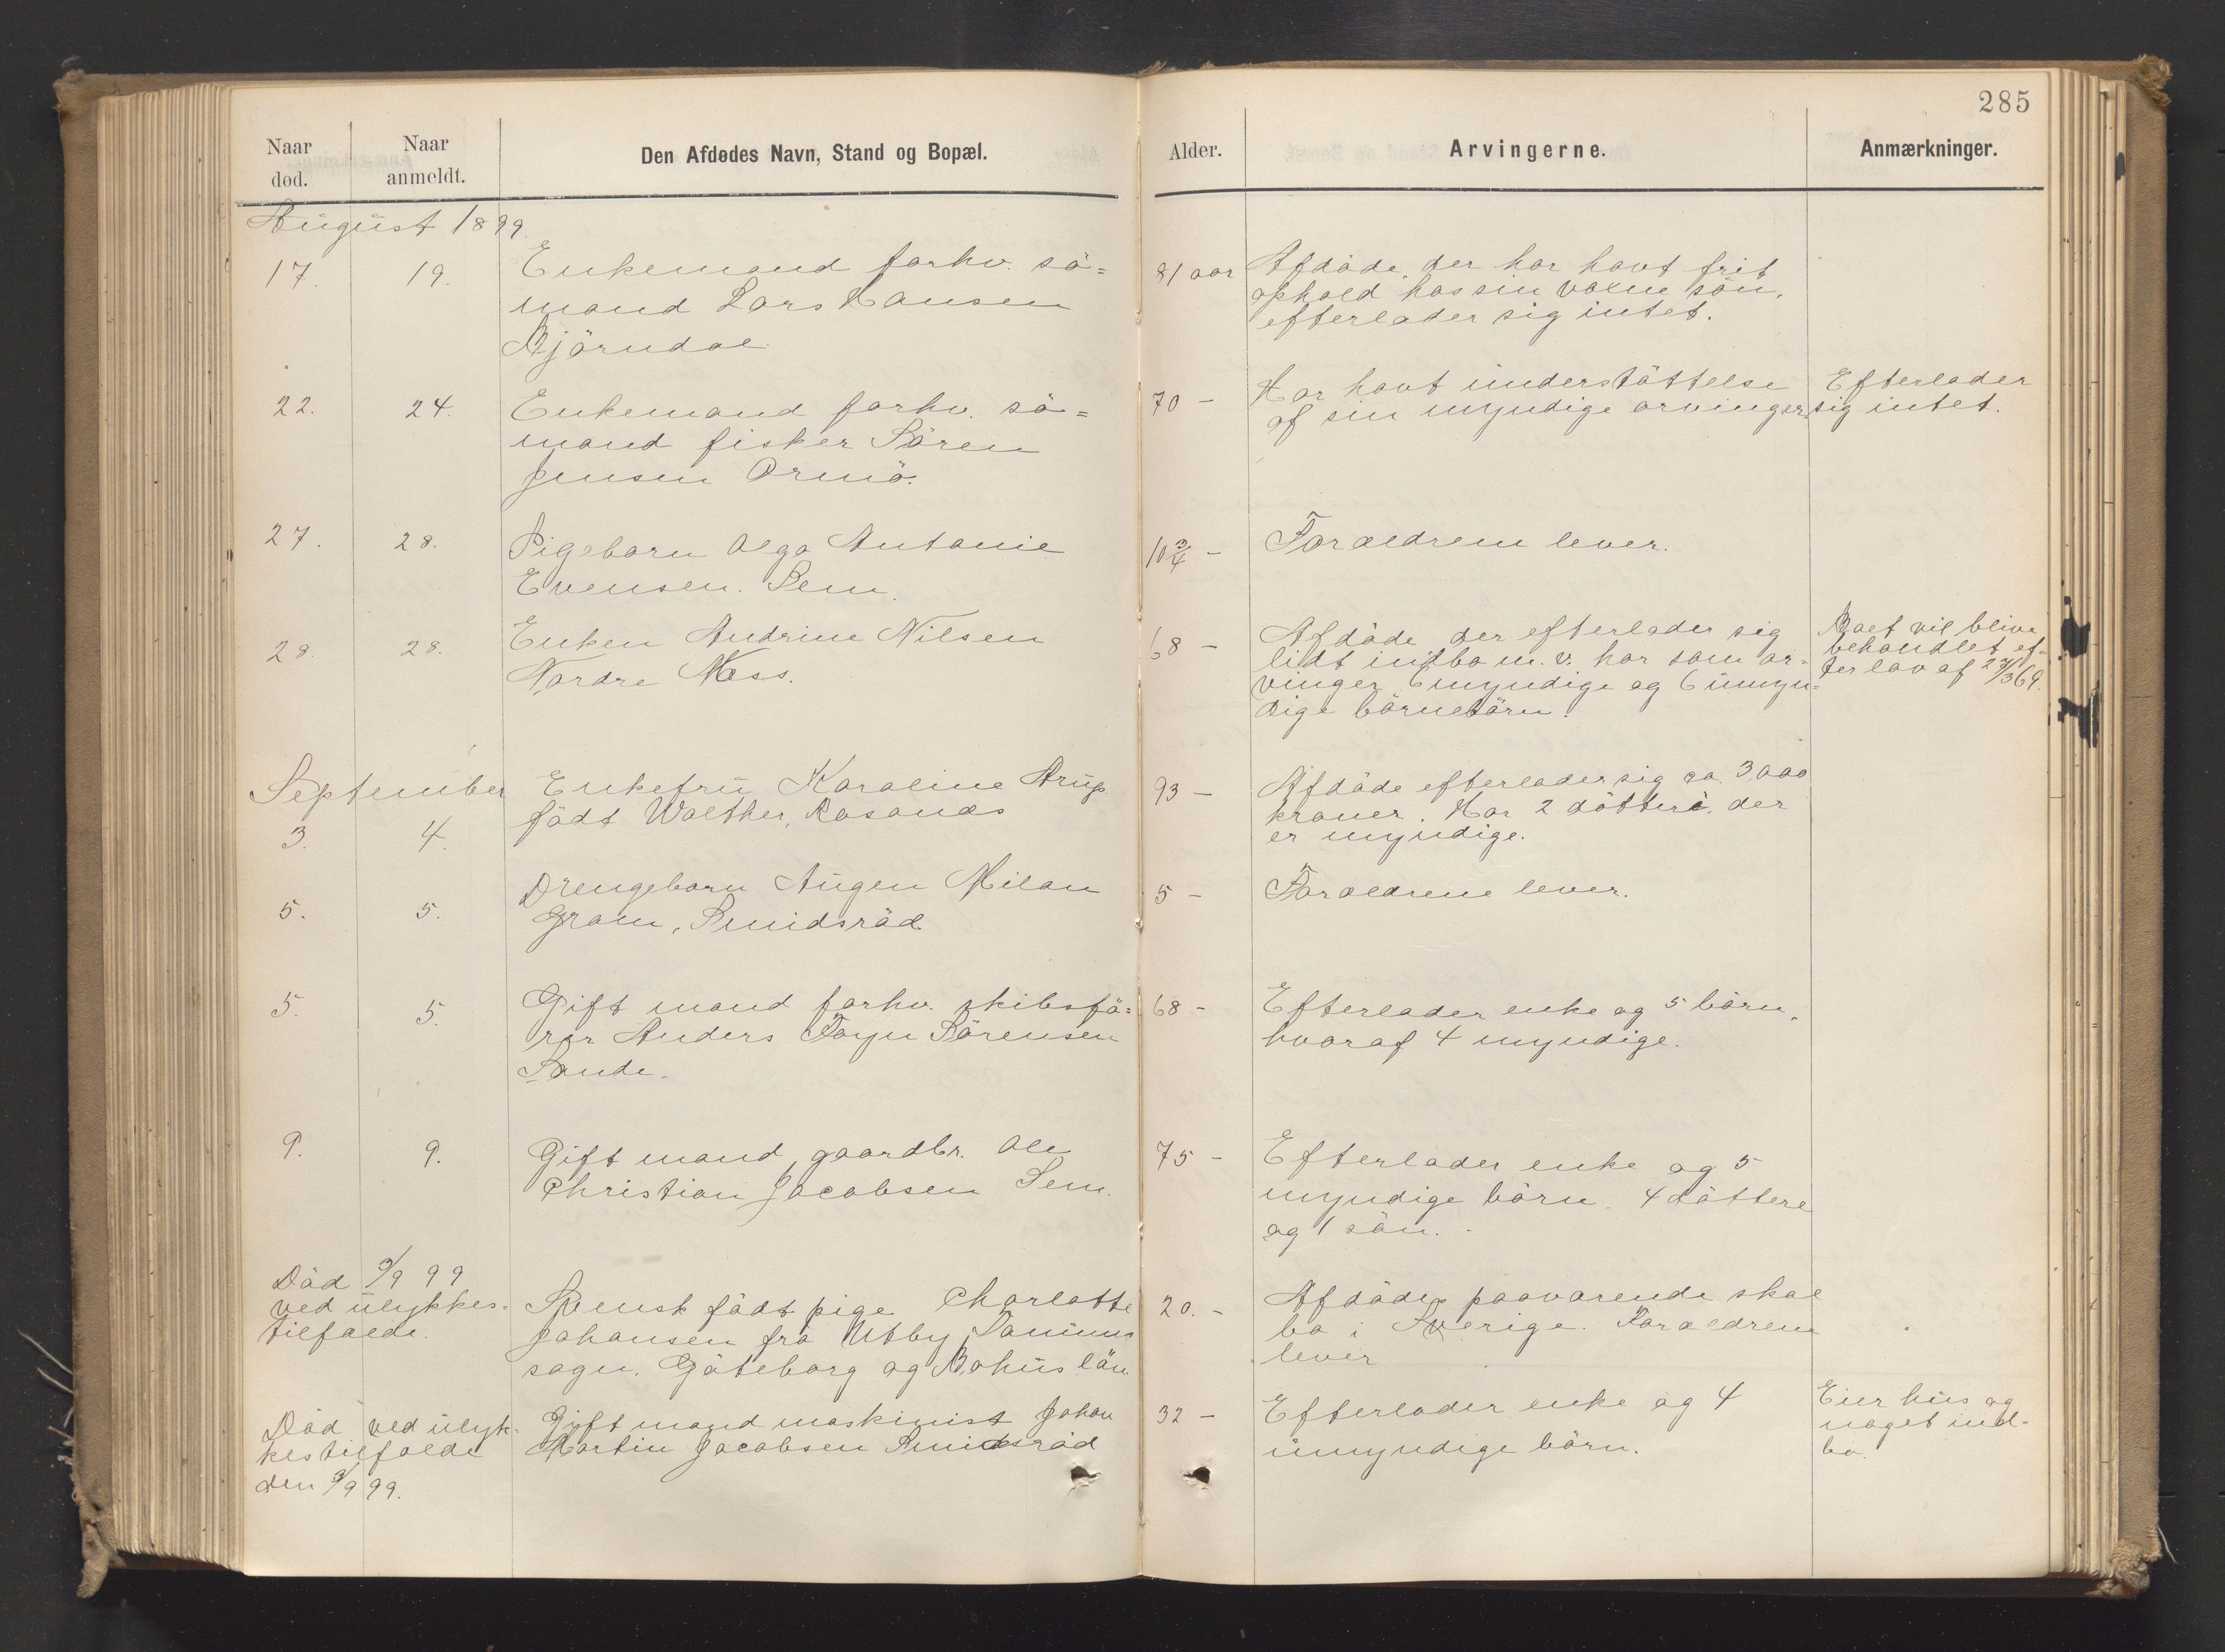 285
Naar død. Naar anmeldt. Den Afdødes Navn, Stand og Bopæl. Alder. Arvingerne. Anmærkninger.
August 1899.
17. 19. Enkemand forhv. sö=
mand Lars Hansen
Björndal
81 aar Afdöde, der har havt frit
ophold hos sin voxne sön,
efterlader sig intet.
22. 24. Enkemand forhv. sö=
mand fisker Sören
Jensen Ormö.
70 - Har havt understöttelse
af sin myndige arvinger
Efterlader
sig intet.
27. 28. Pigebarn Olga Antonie
Evensen. Sem.
10 3/4 - Forældrene lever.
28. 28. Enken Andrine Nilsen
Nordre Næss.
68 - Afdöde der efterlader sig
lidt indbo m. v. har som ar=
vinger 6 myndige og 6 umyn=
dige börnebörn.
Boet vil blive
behandlet ef-
ter lov af 27/3 69.
September
3. 4. Enkefru Karoline Arup
födt Walther, Rosanes
93 - Afdöde efterlader sig ca. 3000
kroner. Har 2 döttere, der
er myndige.
5. 5. Drengebarn Augen Milan
Gram, Smidsröd
5 - Forældrene lever.
5. 5. Gift mand forhv. skibsfö=
rer Anders Foyn Sörensen
Sande.
68 - Efterlader enke og 5 börn,
hvoraf 4 myndige.
9. 9. Gift mand, gaardbr. Ole
Christian Jacobsen Sem.
75 - Efterlader enke og 5
myndige börn. 4 döttere
og 1 sön.
Död 9/9 99
ved ulykkes-
tilfælde.
Svensk födt pige Charlotte
Johansen fra Utby, Tanums
sogn. Göteborg og Bohus län
20. - Afdödes paavarende skal
bo i Sverige. Forældrene
lever
Död ved ulyk-
kestilfælde
den 9/9 99.
Gift mand maskinist Johan
Martin Jacobsen Smidsröd
32 - Efterlader enke og 4
umyndige börn.
Eier hus og
noget ind-
bo.